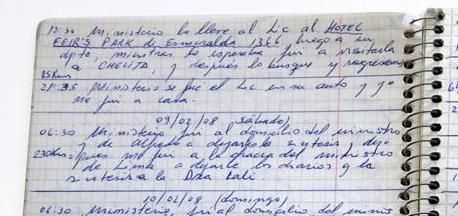 19:30 Ministerio lo lleve al Lic al HOTEL
FEIR'S PARK de Esmeralda 1366 luego a su
dpto, mientras lo esperaba fui a visitarla
a CHELITA, y después lo busque y regresamos
85Km
21:35 Ministerio se fue el Lic en su auto y yo
me fui a casa.
09/02/08 (sábado)
06:30 Ministerio fui al domicilio del ministro
y de Alfredo a dejarle la sintesis, des-
230Km pues me fui a la del ministro
de Lima a dejarle los diarios y la
sintesis a la Dra Lali
10/02/08 (domingo)
06:30 Ministerio, fui al domicilio del minis